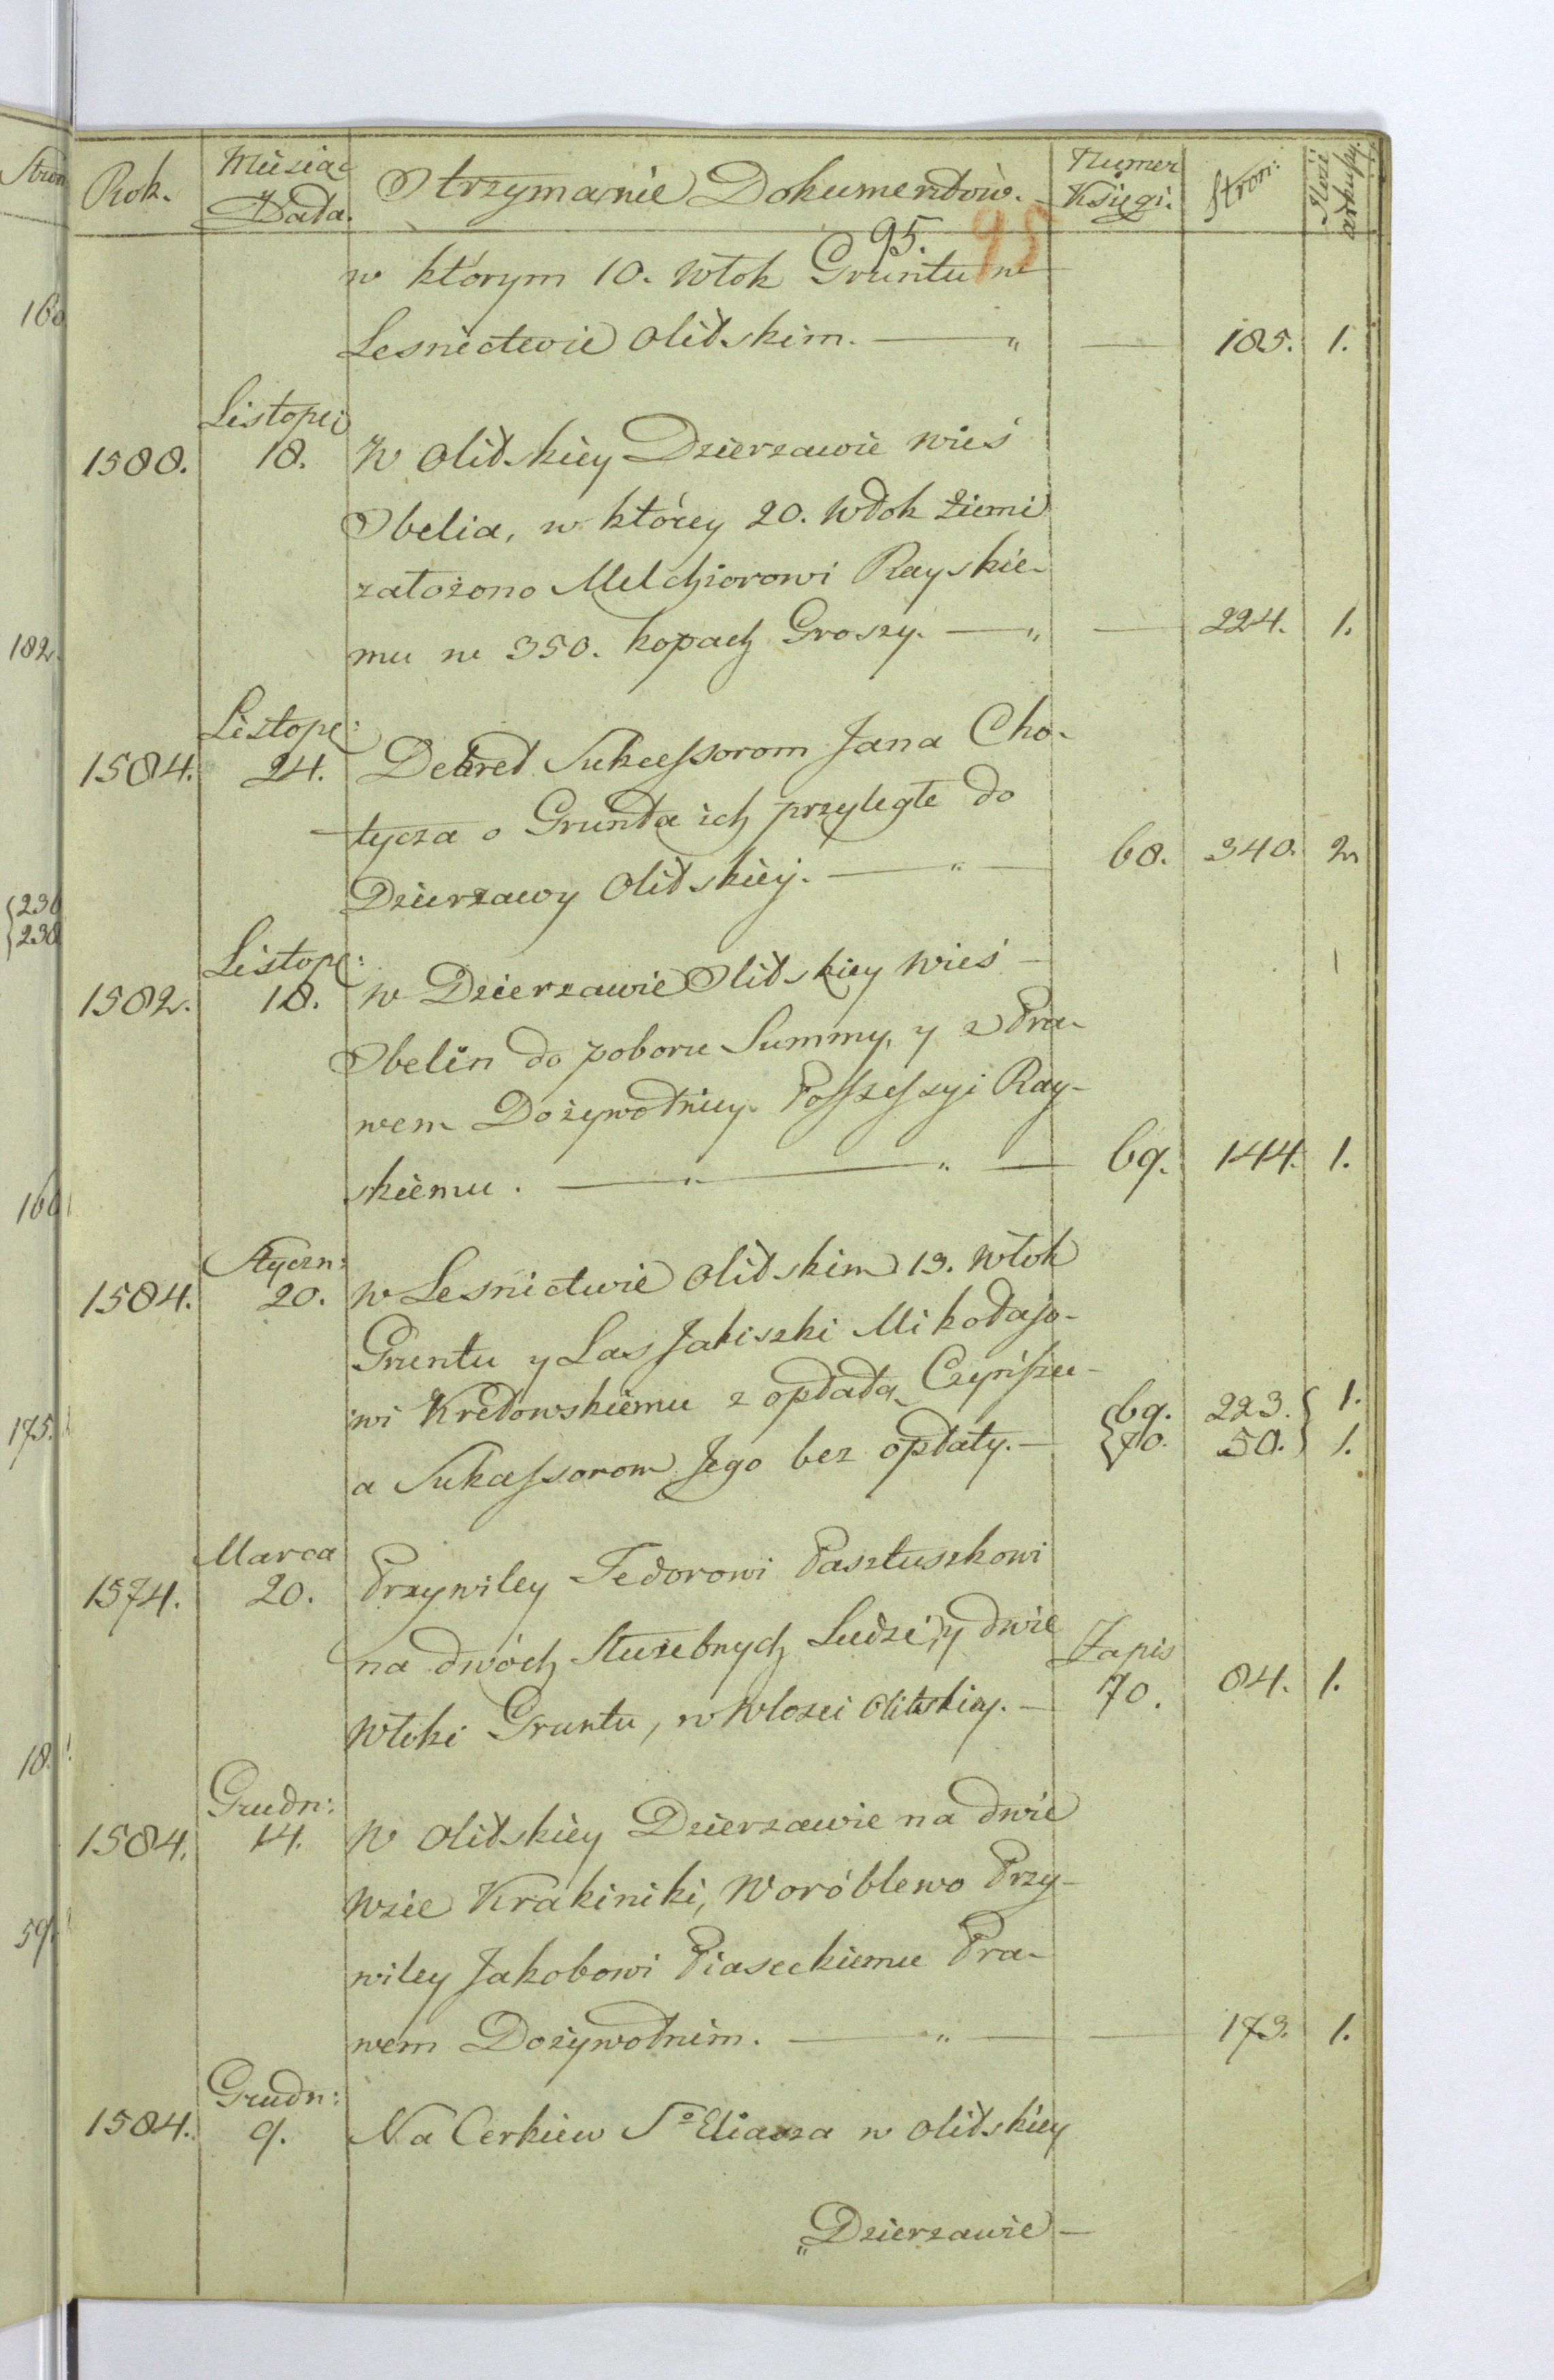 Rok. Miesiąc y Data. Otrzymanie Dokumentów. Numer Księgi. Stron: Ilość arkuszy.
95. 95
w którym 10. Włok Gruntu w
Lesnictwie Olitskim. — „ — 185. 1.
Listopa:
1588. 18. W Olitskiey Dzierzawie wieś
Obelia, w którey 20. Włok Ziemi
założono Melchiorowi Rayskie-
mu w 350. kopach Groszy. — „ — 224. 1.
Listopa:
1584. 24. Dekret Sukcessorom Jana Cho-
tycza o Grunta ich przyległe do
Dzierzawy Olitskiey. — „ — 68. 340. 2
Listopa:
1582. 18. W Dzierzawie Olitskiey wieś —
Obelin do poboru Summy, y z Pra-
wem Dożywotniey Possessyi Ray-
skiemu. — „ — „ — 69. 144. 1.
Styczn:
1584. 20. W Lesnictwie Olitskim 13. Włok
Gruntu y Las Jakiszki Mikołajo-
wi Kredowskiemu z opłatą Czynszu — 69. 223. 1.
a Sukcessorom Jego bez opłaty. — 70. 50. 1.
Marca
1574. 20. Przywiley Fedorowi Pasztuszkowi
na dwóch Służebnych Ludzi, y dwie Zapis
Włoki Gruntu, w Włosci Olitskiey. — 70. 84. 1.
Grudn:
1584. 14. W Olitskiey Dzierzawie na dwie
Wsie Krakiniki, Woróblewo Przy-
wiley Jakobowi Piaseckiemu Pra-
wem Dożywotnim. — „ — 173. 1.
Grudn:
1584. 9. Na Cerkiew So Eliasza w Olitskiey
„Dzierzawie —